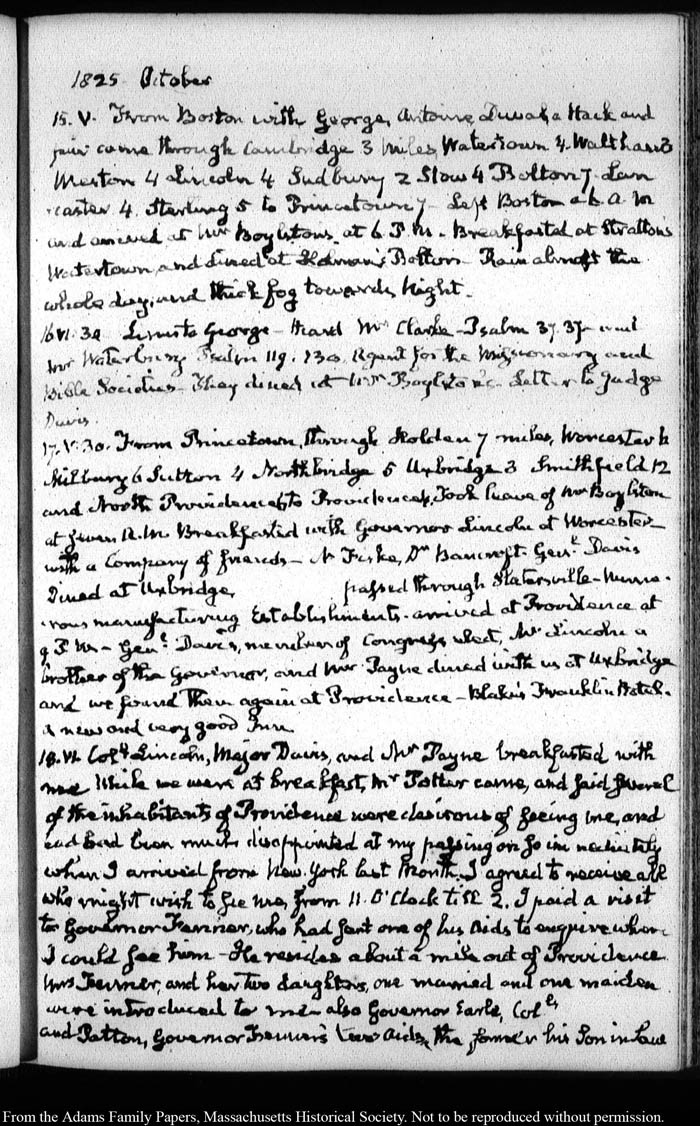 1825 October
15. V. From Boston with George, Antoine, Duval, a Hack and
pair came through Cambridge 3 miles, Watertown 4. Waltham 3
Weston 4 Lincoln 4 Sudbury 2 Stow 4 Bolton 7. Lan
caster 4. Sterling 5 to Princetown 7. Left Boston at 6 A.M
and arrived at Mr Boylstons at 6 P.M. Breakfasted at Strattons
Watertown, and dined at Bolton Rain almost the
whole day, and thick fog towards Night.
16 VI: 30. to George - Heard Mr Clarke - Psalm 37. 37. and
Mr Waterbury Psalm 119. 130. Agent for the Missionary and
Bible Societies - They dined at Mr Boylston's. Letter to Judge
Davis.
17. V. 30. From Princetown, through Holden 7 miles, Worcester
Milbury 6 Sutton 4 Northbridge 5 Uxbridge 3 Smithfield 12
and North Providence to Providence 4. Took leave of Mr Boylston
at seven A.M. Breakfasted with Governor Lincoln at Worcester
with a Company of friends - Fiske, Dr Bancroft. Genl Davis
Dined at Uxbridge, passed through Slatersville - Nume
rous manufacturing Establishments. arrived at Providence at
9 P.M. - Genl Davis, member of Congress elect, Mr Lincoln a
brother of the Governor, and Mr Payne dined with us at Uxbridge
and we found them again at Providence - Blake's Franklin Hotel.
a new and very good Inn
18. VI. Coll Lincoln, Major Davis, and Mr Payne breakfasted with
me While we were at breakfast, Mr Potter came, and said several
of the inhabitants of Providence were desirous of seeing me, and
had been much disappointed at my passing on so immediately
when I arrived from New-York last Month. I agreed to receive all
who might wish to see me, from 11. O'Clock till 2. I paid a visit
to Governor Fenner, who had sent one of his Aids to enquire when
I could see him - He resides about a mile out of Providence
Mrs Fenner, and her two daughters, one married and one maiden
were introduced to me - also Governor Earle, Cols
and Patton, Governor Fenner's two Aids, the former his Son in Law
From the Adams Family Papers, Massachusetts Historical Society. Not to be reproduced without permission.